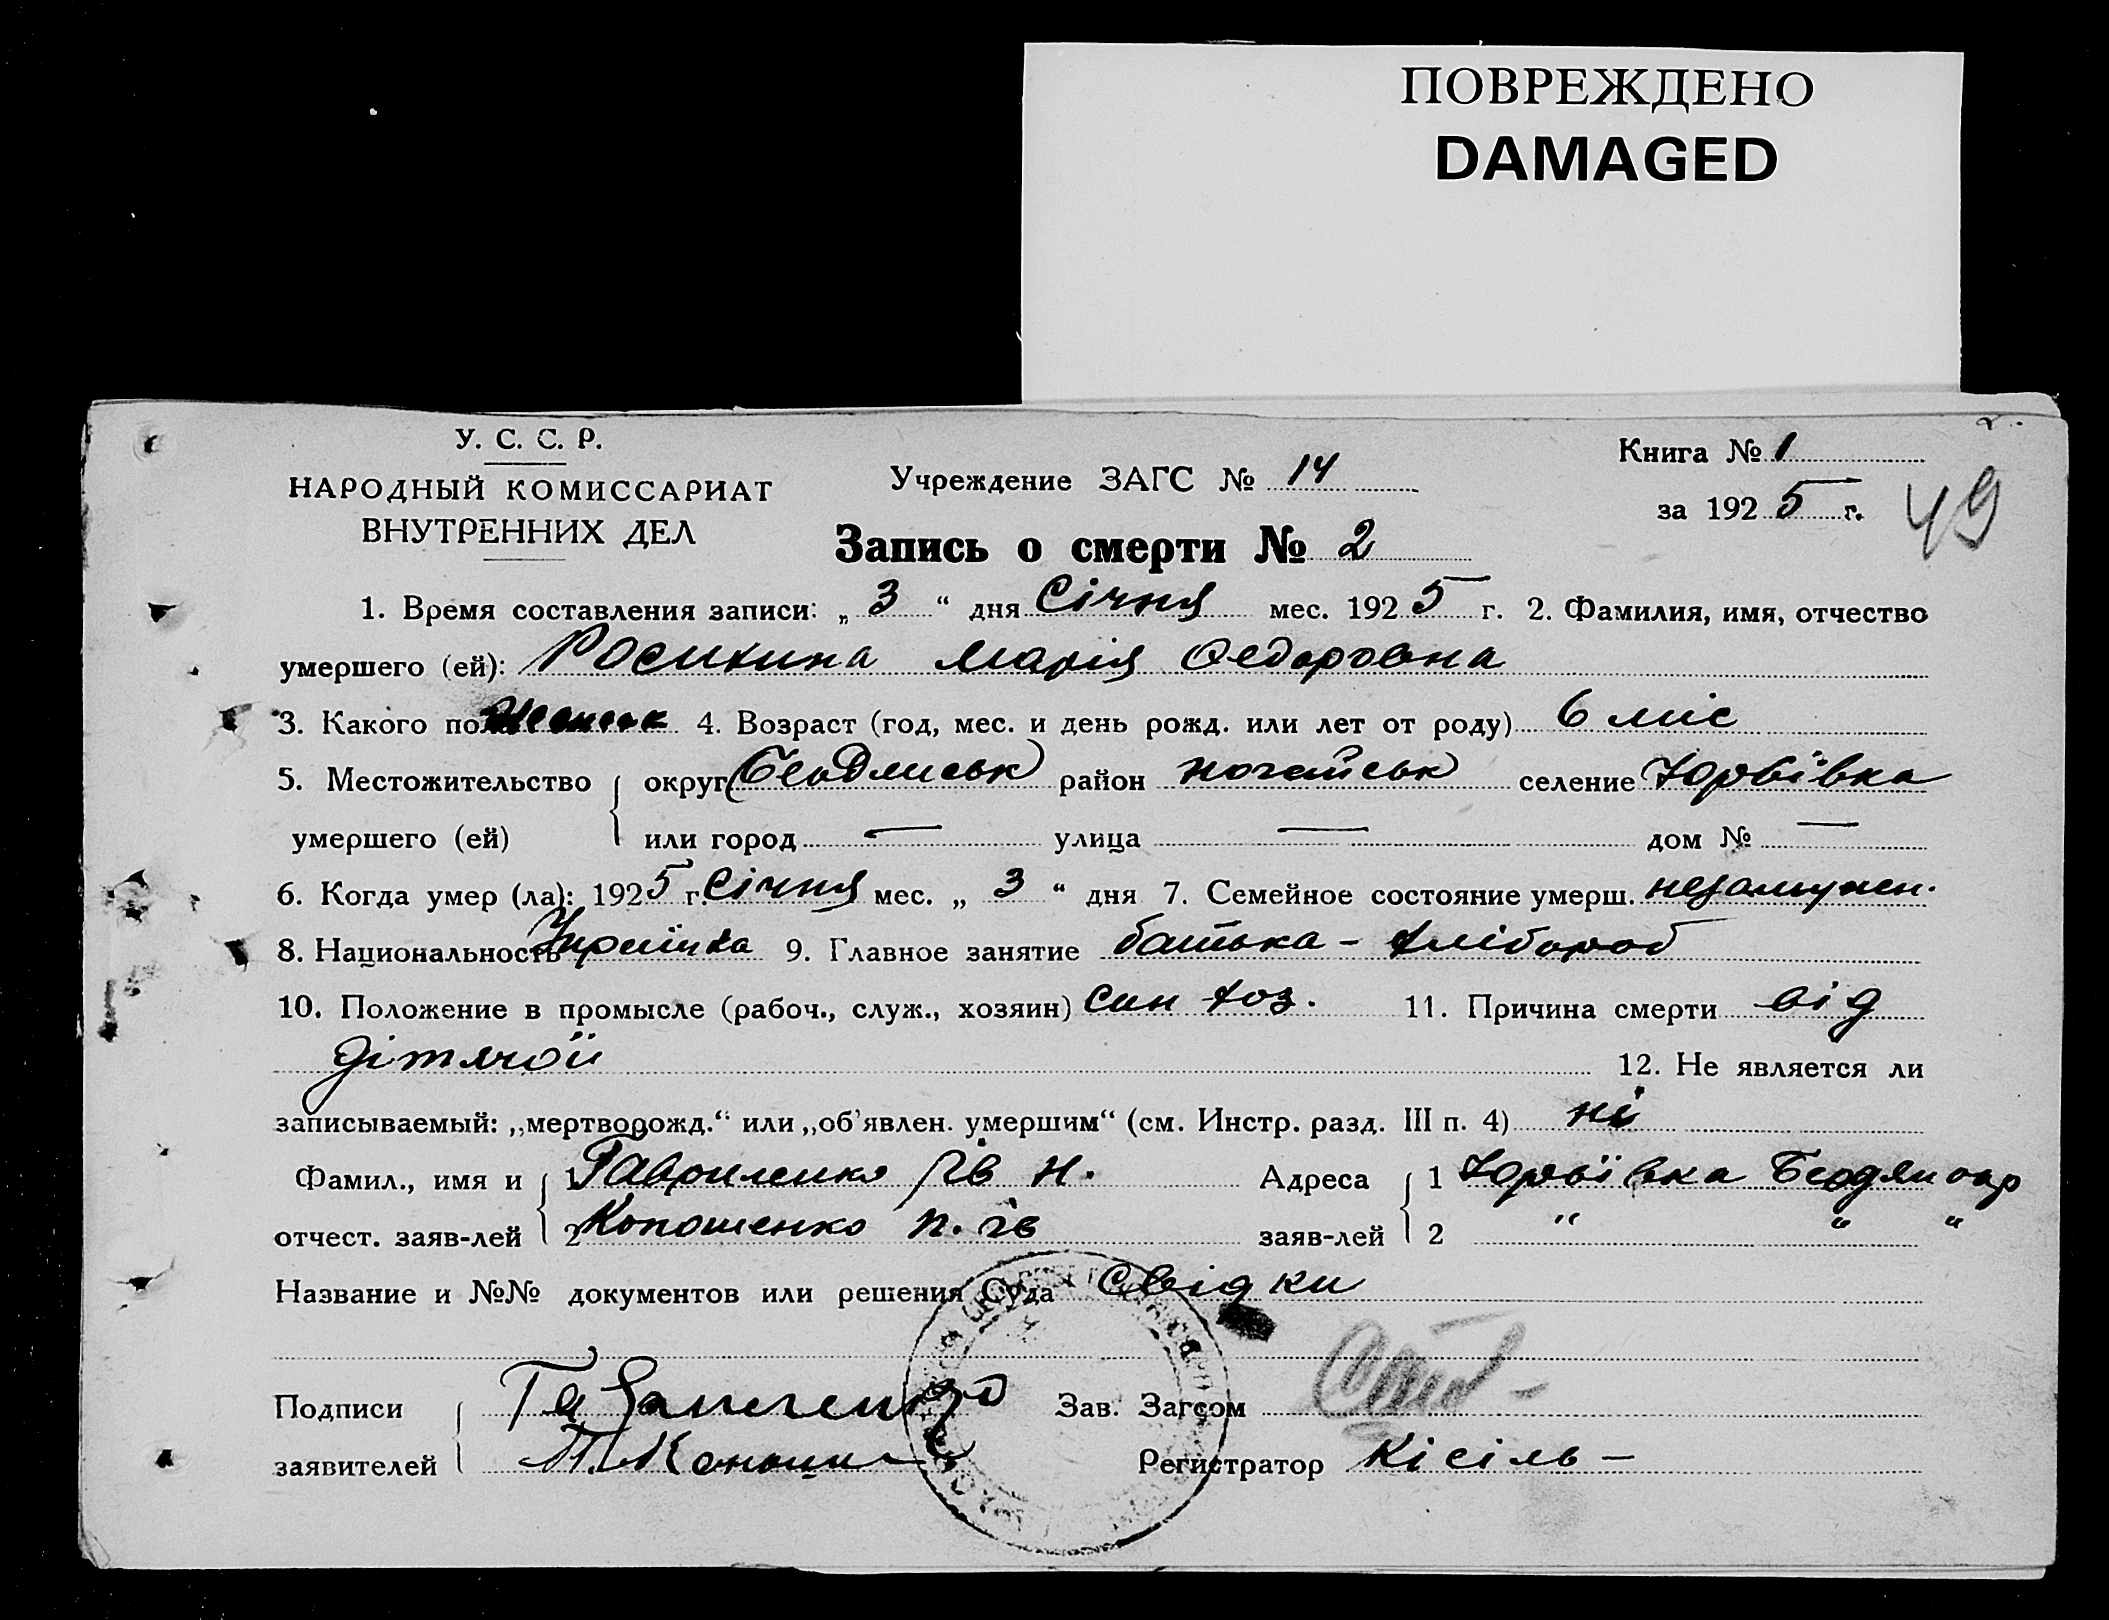 ПОВРЕЖДЕНО
DAMAGED
У. С. С. Р.
НАРОДНЫЙ КОМИССАРИАТ
ВНУТРЕННИХ ДЕЛ
Учреждение ЗАГС № 14
Книга № 1
за 1925 г.
49
Запись о смерти № 2
1. Время составления записи: „ 3 “ дня Січня мес. 1925 г. 2. Фамилия, имя, отчество
умершего (ей): Росихина Марія Федоровна
3. Какого пола Женськ 4. Возраст (год, мес. и день рожд. или лет от роду) 6 міс
5. Местожительство округ Бердянськ район Ногайськ селение Юрьївка
умершего (ей) или город — улица — дом № —
6. Когда умер (ла): 1925 г. Січня мес. „ 3 “ дня 7. Семейное состояние умерш. незамужен.
8. Национальность Українка 9. Главное занятие батька - хлібороб
10. Положение в промысле (рабоч., служ., хозяин) син хоз. 11. Причина смерти від
дітячої 12. Не является ли
записываемый: „мертворожд.“ или „об'явлен. умершим“ (см. Инстр. разд. III п. 4) ні
Фамил., имя и 1 Гавриленко Ів Н. Адреса 1 Юрьївка Бердян окр
отчест. заяв-лей 2 Копошенко П. Ів заяв-лей 2 " " "
Название и №№ документов или решения Суда Свідки
Подписи Зав. Загсом
заявителей Регистратор Кісіль -